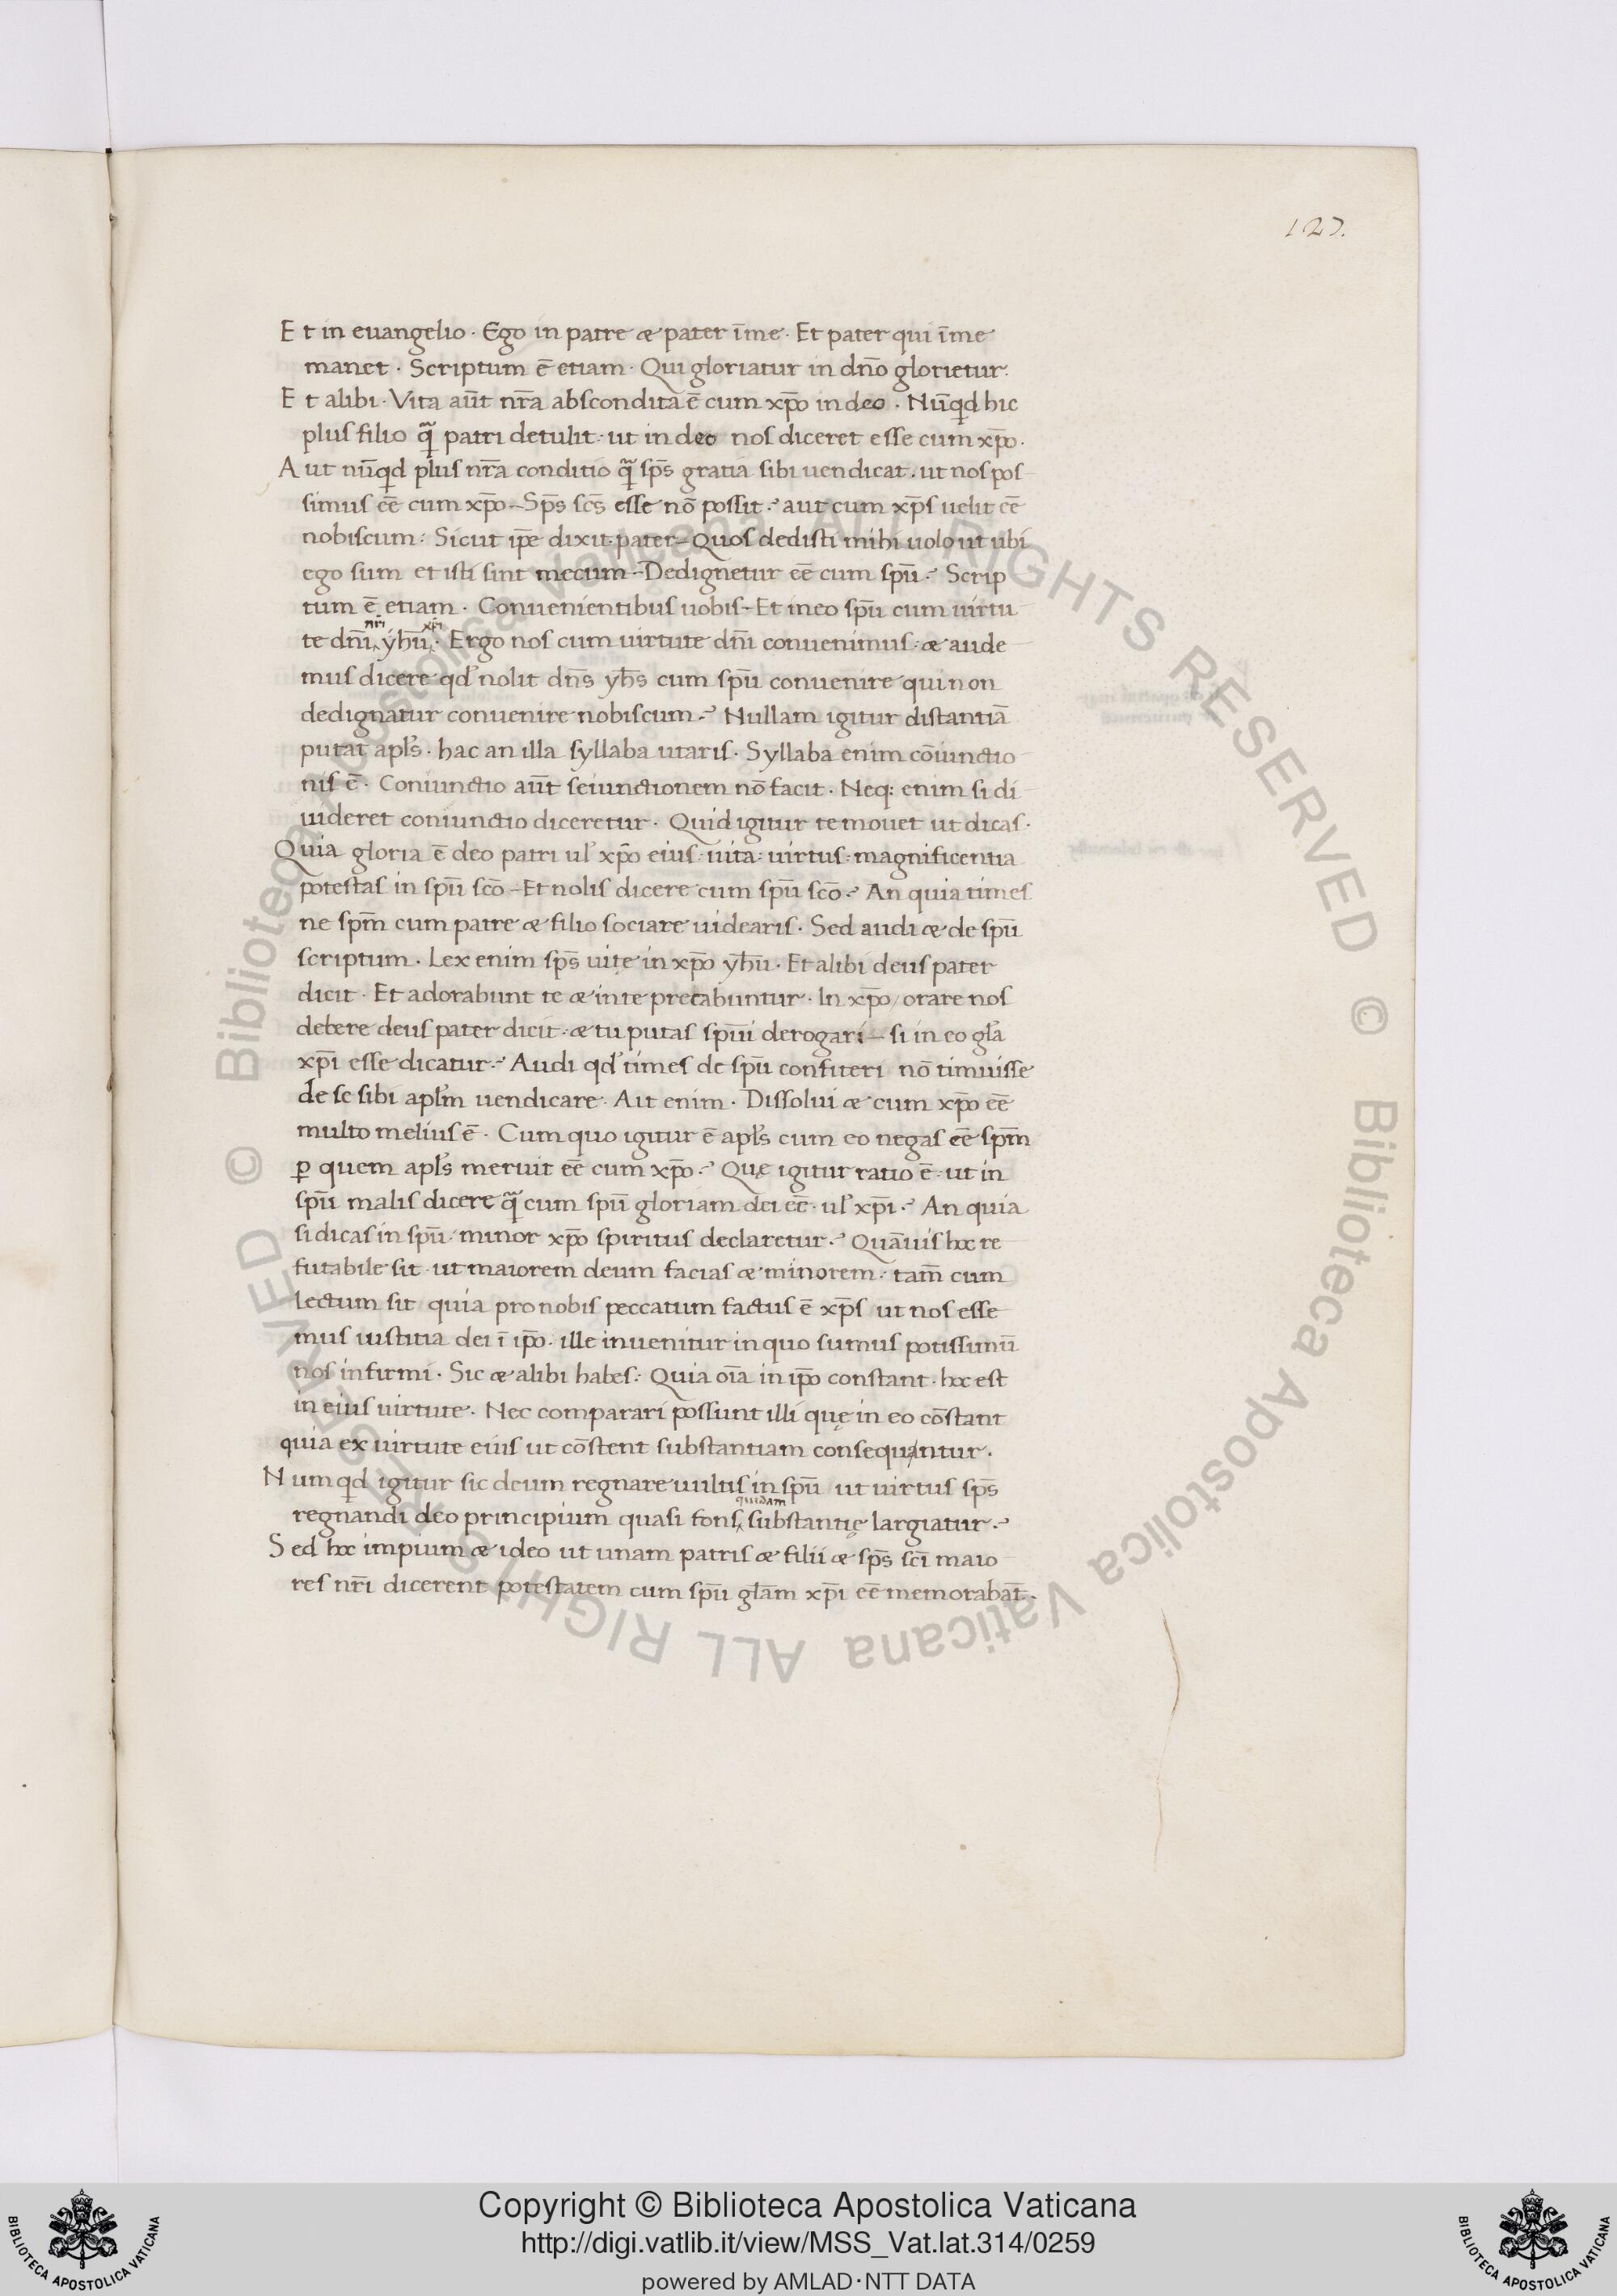 127.
Et in euangelio · Ego in patre & pater īme · Et pater qui īme
manet · Scriptum ē etiam · Qui gloriatur in dn̄o glorietur ·
Et alibi · Vita aūt nr̄a abscondita ē cum xp̄o in deo · Nūqd hic
plus filio q̄ patri detulit · ut in deo nos diceret esse cum xp̄o ·
Aut nūqd plus nr̄a conditio q̄ sp̄s gratiā sibi uendicat · ut nos pos
simus ēē cum xp̄o – Sp̄s sc̄s esse nō possit ? aut cum xp̄s uelit ēē
nobiscum : Sicut ip̄e dixit · pater – Quos dedisti mihi uolo ut ubi
ego sum et isti sint mecum – Dedignetur ēē cum sp̄u ? Scrip
tum ē etiam · Conuenientibus uobis – Et in eo sp̄u cum uirtu
te dn̄i nr̄i yh̄u xp̄i · Ergo nos cum uirtute dn̄i conuenimus : & aude
mus dicere qd' nolit dn̄s yh̄s cum sp̄u conuenire qui non
dedignatur conuenire nobiscum ? Nullam igitur distantiā
putat apl's · hac an illa syllaba utaris · Syllaba enim cōiunctio
nis ē · Coniunctio aūt seiunctionem nō facit · Neq: enim si di
uideret coniunctio diceretur · Quid igitur te mouet ut dicas ·
Quia gloria ē deo patri ul' xp̄o eius : uita : uirtus : magnificentia
potestas in sp̄u sc̄o – Et nolis dicere cum sp̄u sc̄o ? An quia times
ne sp̄m cum patre & filio sociare uidearis · Sed audi & de sp̄u
scriptum · Lex enim sp̄s uitę in xp̄o yh̄u · Et alibi deus pater
dicit · Et adorabunt te & in te precabuntur · In xp̄o / orare nos
debere deus pater dicit · & tu putas sp̄ui derogari – si in eo gl'a
xp̄i esse dicatur ? Audi qd' times de sp̄u confiteri nō timuisse
de se sibi apl'm uendicare · Ait enim · Dissolui & cum xp̄o ēē
multo melius ē · Cum quo igitur ē apl's cum eo negas ēē sp̄m
ꝑ quem apl's meruit ēē cum xp̄o ? Quę igitur ratio ē · ut in
sp̄u malis dicere q̄ cum sp̄u gloriam dei ēē · ul' xp̄i ? An quia
si dicas in sp̄u · minor xp̄o spiritus declaretur ? Quāuis hoc re
futabile sit · ut maiorem deum facias & minorem : tam̄ cum
lectum sit quia pro nobis peccatum factus ē xp̄s ut nos esse
mus iustitia dei ī ip̄o · ille inuenitur in quo sumus potissimū
nos infirmi · Sic & alibi habes : Quia oīa in ip̄o constant · hoc est
in eius uirtute · Nec comparari possunt illi quę in eo cōstant
quia ex uirtute eius ut cōstent substantiam consequantur ·
Numqd igitur sic deum regnare uultis in sp̄u ut uirtus sp̄s
regnandi deo principium quasi fons quidam substantię largiatur ?
Sed hoc impium & ideo ut unam patris & filii & sp̄s sc̄i maio
res nr̄i dicerent potestatem cum sp̄u gl̄am xp̄i ēē memorabāt ·
© Biblioteca Apostolica Vaticana ALL RIGHTS RESERVED © Biblioteca Apostolica Vaticana ALL RIGHTS RESERVED
Copyright © Biblioteca Apostolica Vaticana
http://digi.vatlib.it/view/MSS_Vat.lat.314/0259
powered by AMLAD·NTT DATA
BIBLIOTECA APOSTOLICA VATICANA
BIBLIOTECA APOSTOLICA VATICANA